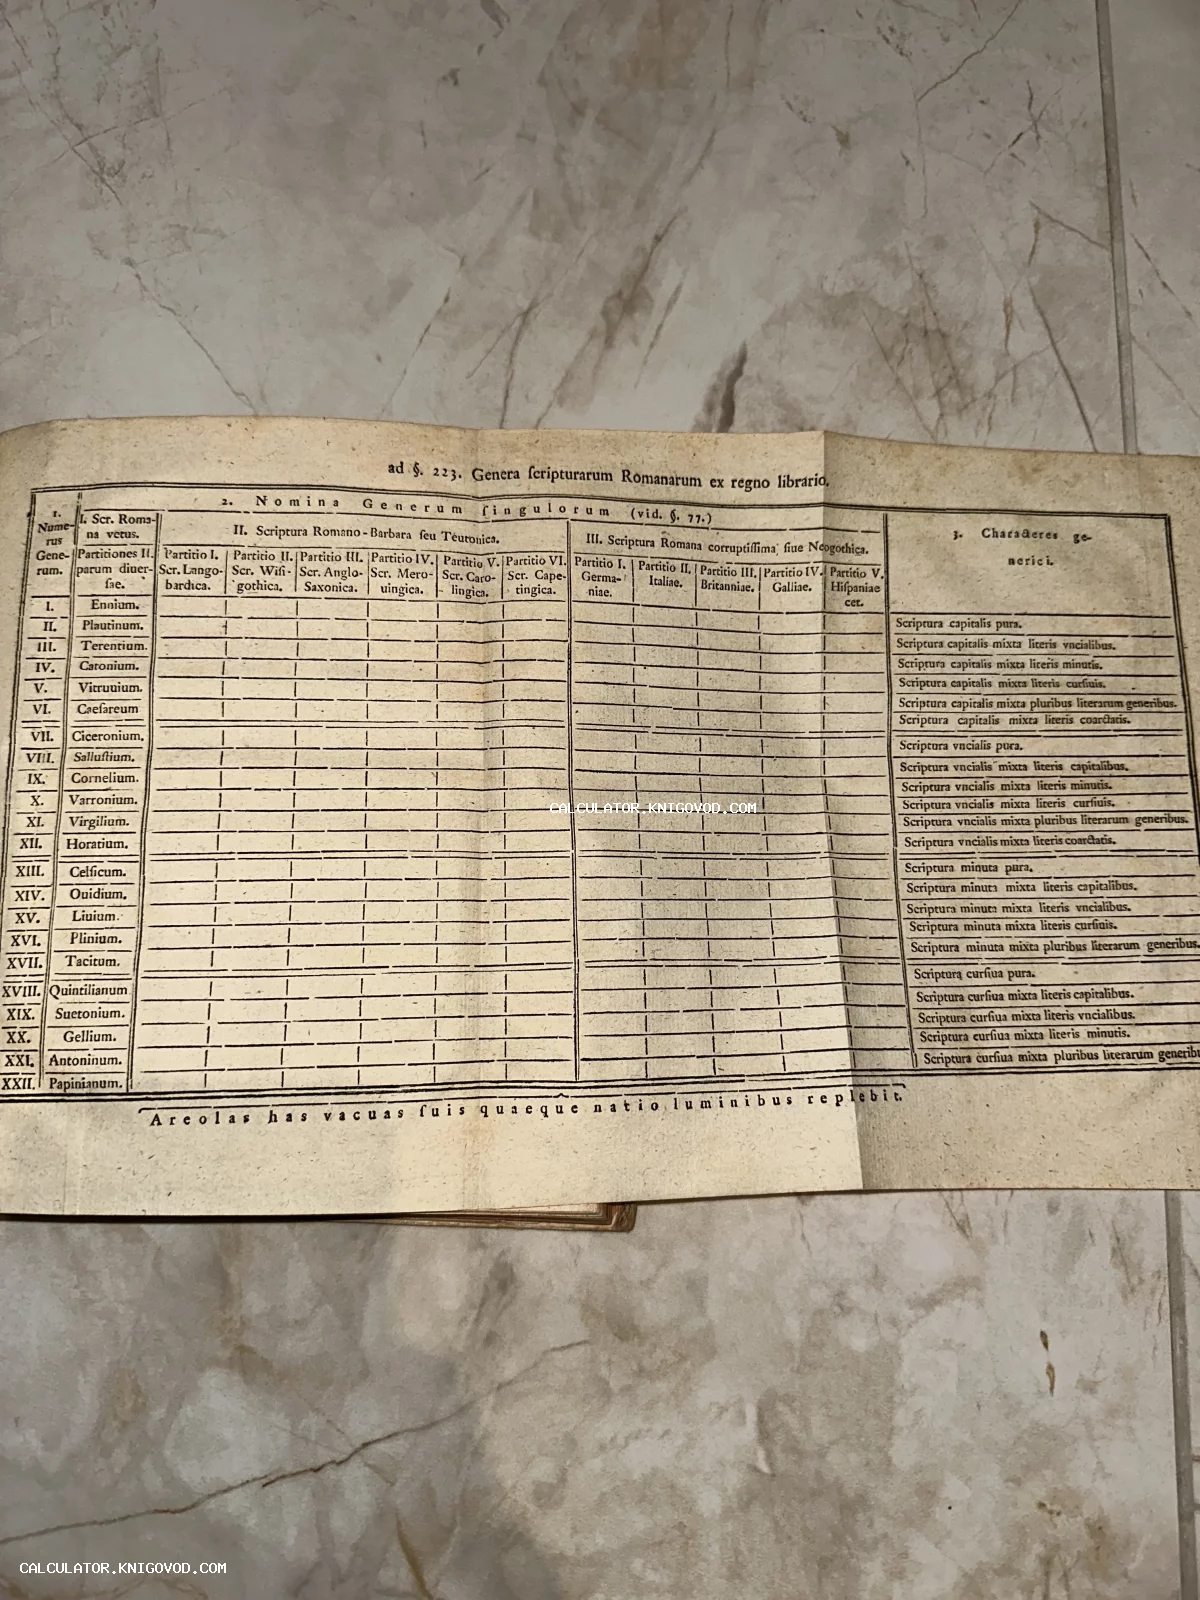 ad §. 223. Genera ſcripturarum Romanarum ex regno librario.
1. Nume-
rus
Gene-
rum.
2. Nomina Generum ſingulorum (vid. §. 77.)
I. Scr. Roma-
na vetus.
Partitiones II.
parum diuer-
ſae.
II. Scriptura Romano-Barbara ſeu Teutonica.
Partitio I.
Scr. Lango-
bardica.
Partitio II.
Scr. Wiſi-
gothica.
Partitio III.
Scr. Anglo-
Saxonica.
Partitio IV.
Scr. Mero-
uingica.
Partitio V.
Scr. Caro-
lingica.
Partitio VI.
Scr. Cape-
tingica.
III. Scriptura Romana corruptiſſima, ſiue Neogothica.
Partitio I.
Germa-
niae.
Partitio II.
Italiae.
Partitio III.
Britanniae.
Partitio IV.
Galliae.
Partitio V.
Hiſpaniae
cet.
3. Characteres ge-
nerici.
I. Ennium. Scriptura capitalis pura.
II. Plautinum. Scriptura capitalis mixta literis vncialibus.
III. Terentium. Scriptura capitalis mixta literis minutis.
IV. Catonium. Scriptura capitalis mixta literis curſiuis.
V. Vitruuium. Scriptura capitalis mixta pluribus literarum generibus.
VI. Caeſareum Scriptura capitalis mixta literis coarctatis.
VII. Ciceronium. Scriptura vncialis pura.
VIII. Salluſtium. Scriptura vncialis mixta literis capitalibus.
IX. Cornelium. Scriptura vncialis mixta literis minutis.
X. Varronium. Scriptura vncialis mixta literis curſiuis.
XI. Virgilium. Scriptura vncialis mixta pluribus literarum generibus.
XII. Horatium. Scriptura vncialis mixta literis coarctatis.
XIII. Celſicum. Scriptura minuta pura.
XIV. Ouidium. Scriptura minuta mixta literis capitalibus.
XV. Liuium. Scriptura minuta mixta literis vncialibus.
XVI. Plinium. Scriptura minuta mixta literis curſiuis.
XVII. Tacitum. Scriptura minuta mixta pluribus literarum generibus.
XVIII. Quintilianum Scriptura curſiua pura.
XIX. Suetonium. Scriptura curſiua mixta literis capitalibus.
XX. Gellium. Scriptura curſiua mixta literis vncialibus.
XXI. Antoninum. Scriptura curſiua mixta literis minutis.
XXII. Papinianum. Scriptura curſiua mixta pluribus literarum generibu
Areolas has vacuas ſuis quaeque natio luminibus replebit.
CALCULATOR.KNIGOVOD.COM
CALCULATOR.KNIGOVOD.COM